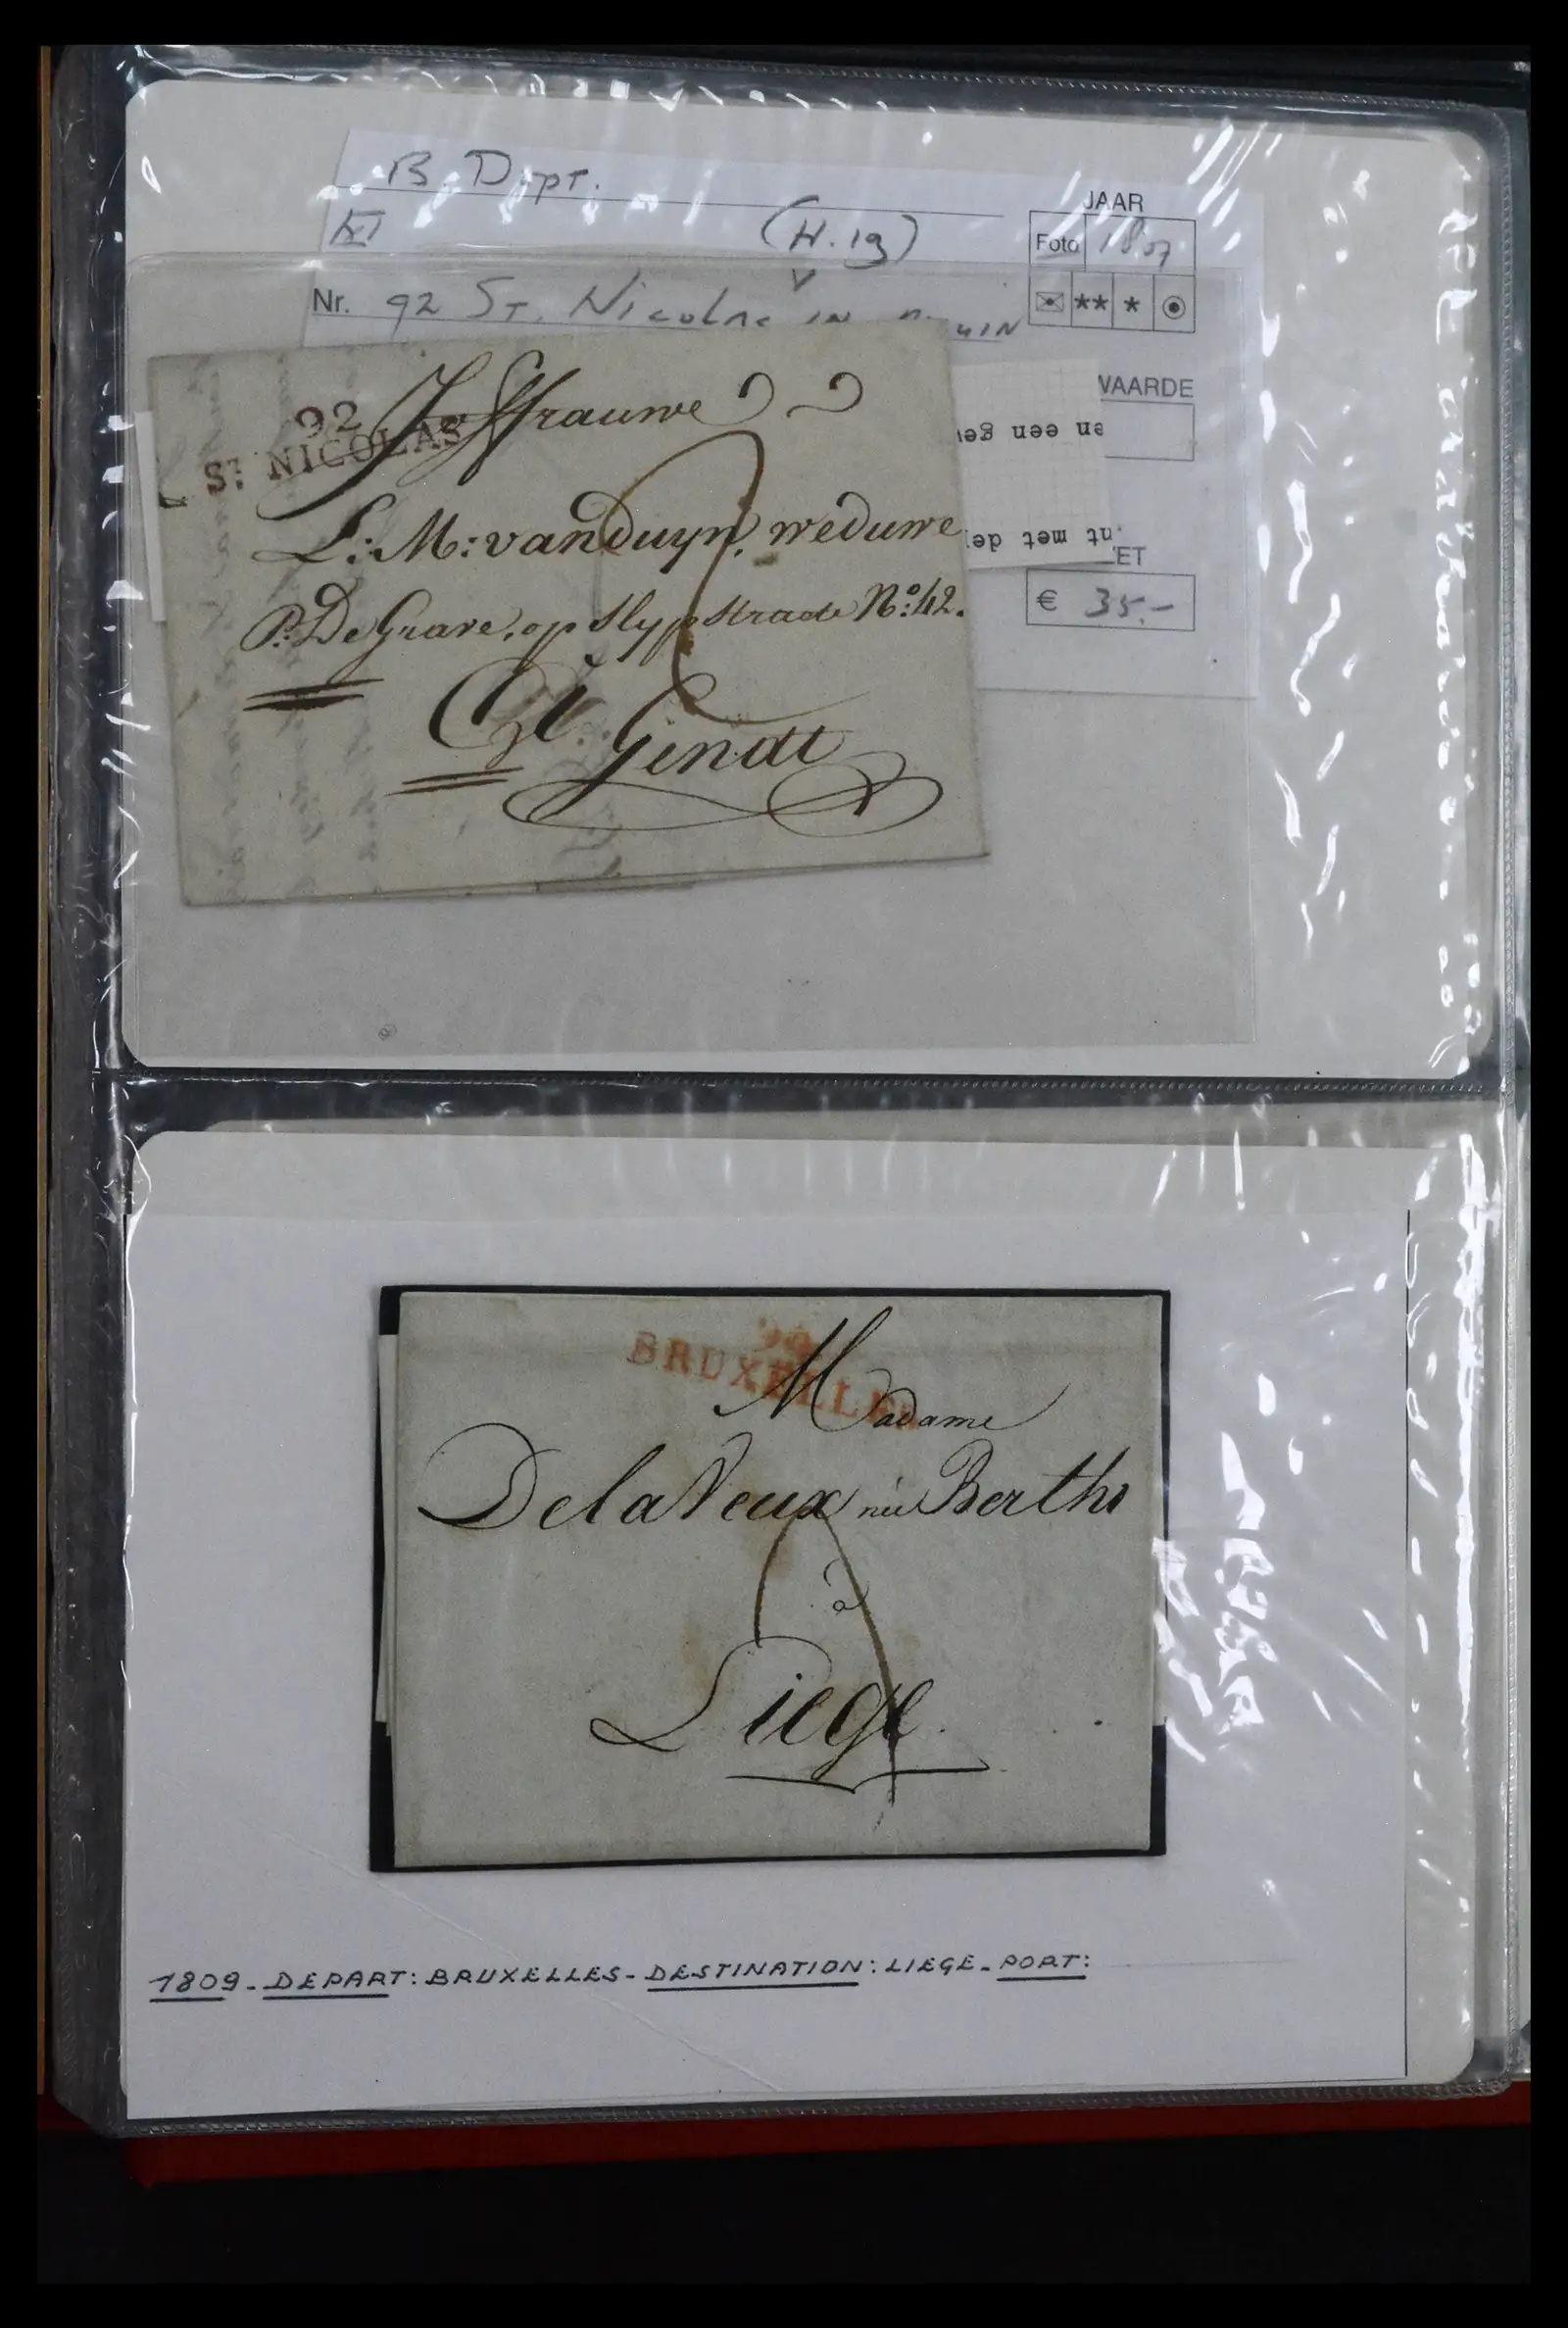 B. Dept.
(H. 19)
JAAR
Foto 1807
** *
Nr. 92 St. Nicolas in
WAARDE
en een gev
nt met de
ET
€ 35.-
92
ST NICOLAS
Joffrauwe
L: M: van Duyn, weduwe
P: De Grave, op Slypstraete No: 42.
Gendt
94
BRUXELLES
Madame
Dela Veux née Berthe
à
Liege
1809 - DEPART: BRUXELLES - DESTINATION: LIEGE - PORT: